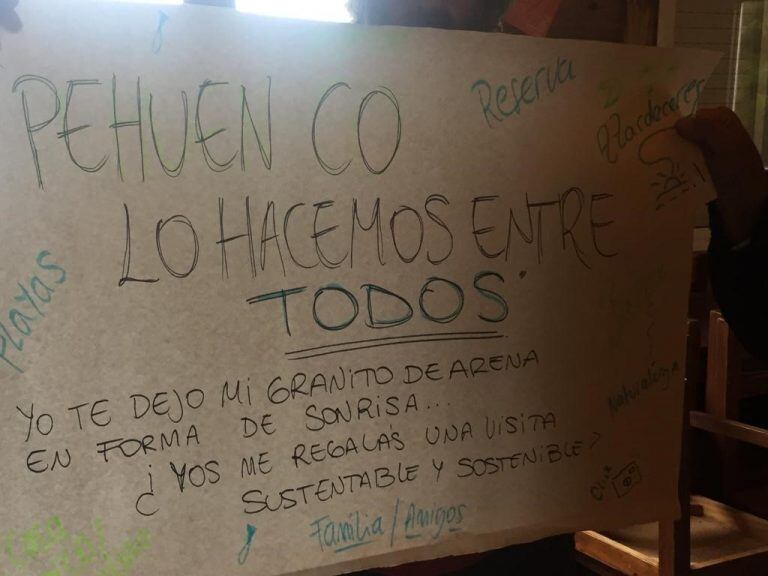 PEHUEN CO
Reserva
Atardeceres
LO HACEMOS ENTRE
TODOS
Playas
YO TE DEJO MI GRANITO DE ARENA
EN FORMA DE SONRISA...
¿ VOS ME REGALÁS UNA VISITA
SUSTENTABLE Y SOSTENIBLE?
Naturaleza
Click
Familia / Amigos